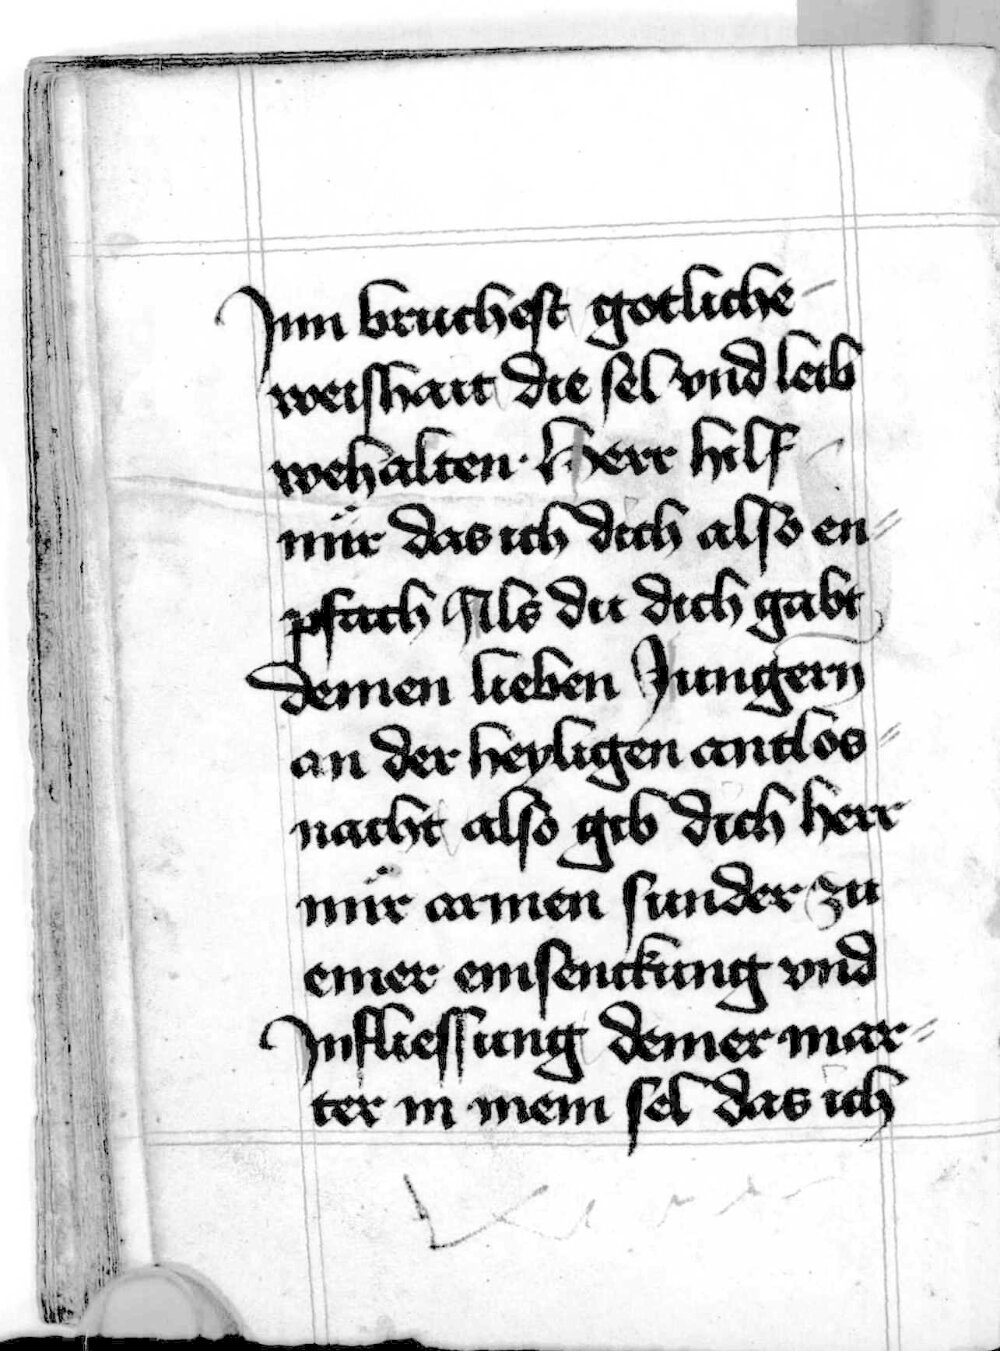 Jnn bruchest gotliche
weishait die sel vnd leib
wehalten. Herr hilf
mir das ich dich also en=
pfach Als du dich gabt
deinen lieben Jungern
an der heyligen antlos=
nacht also gib dich herr
mir armen sunder zu
einer einsenckung vnd
Jnfliessung deiner mar=
ter in mein sel das ich